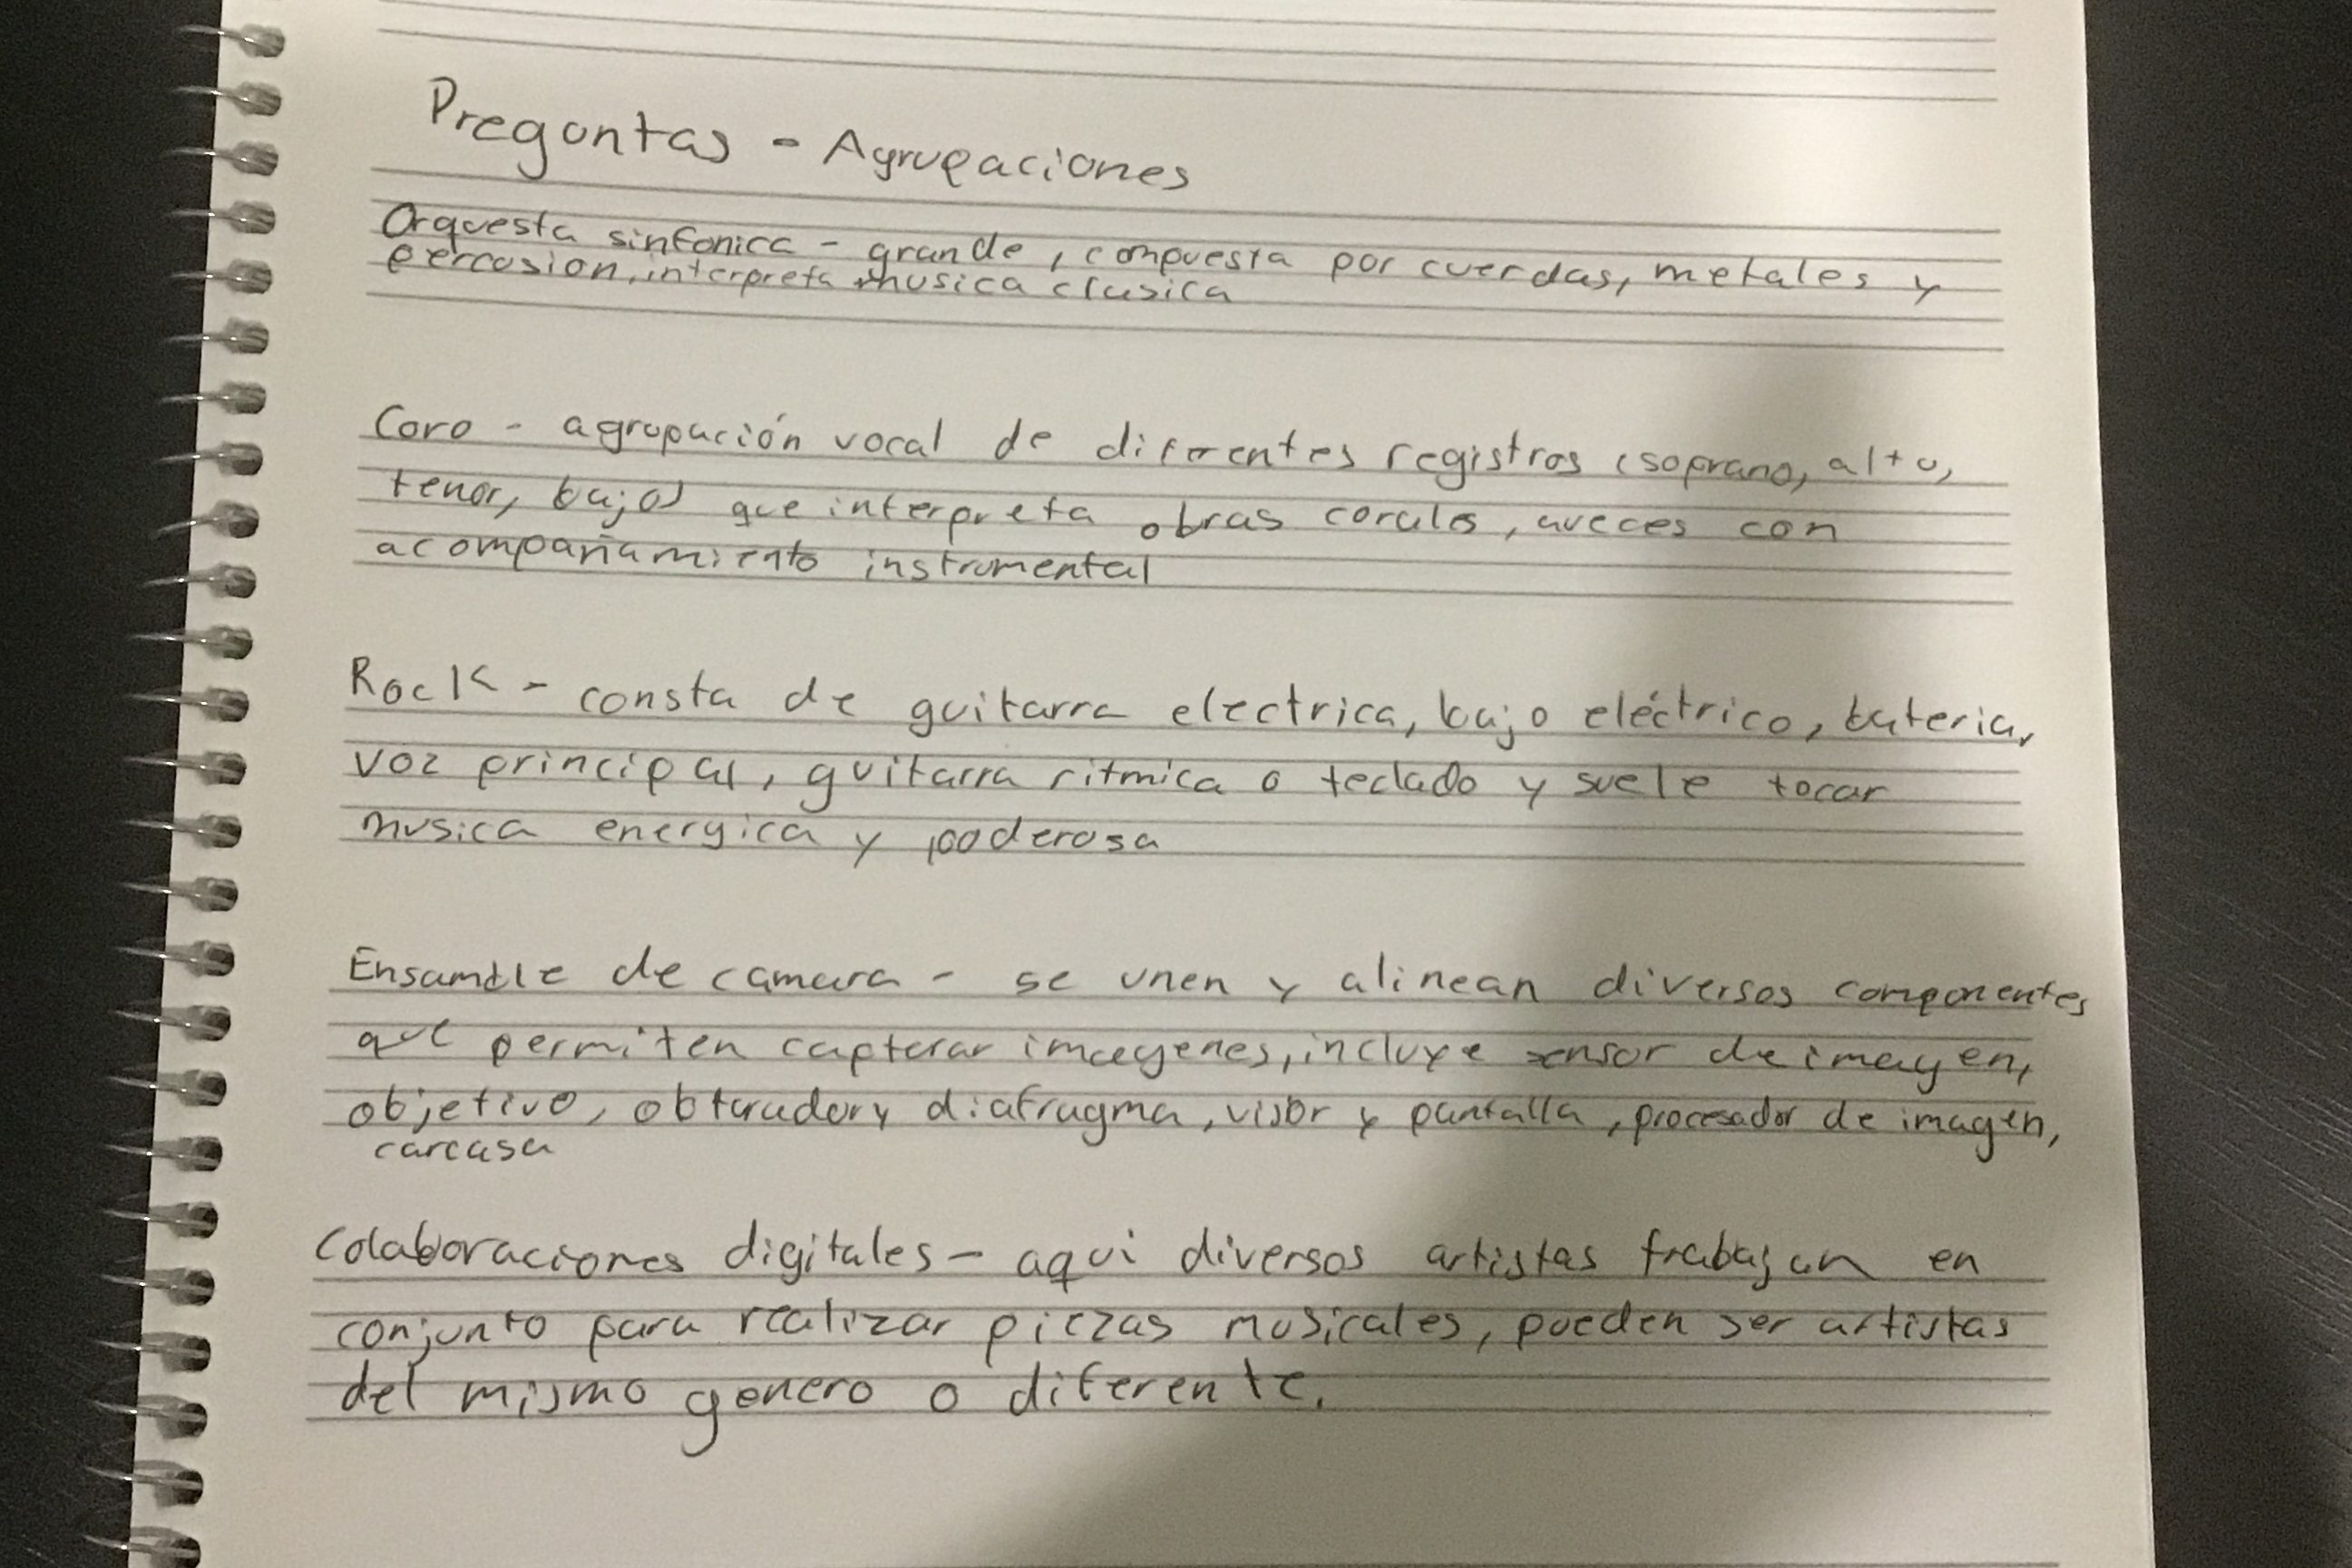 Preguntas - Agrupaciones
Orquesta sinfonica - grande, compuesta por cuerdas, metales y
percusion, interpreta musica clasica
Coro - agrupación vocal de diferentes registros (soprano, alto,
tenor, bajo) que interpreta obras corales, aveces con
acompañamiento instrumental
Rock - consta de guitarra electrica, bajo eléctrico, bateria,
voz principal, guitarra ritmica o teclado y suele tocar
musica energica y poderosa
Ensamble de camara - se unen y alinean diversos componentes
que permiten capterar imagenes, incluye sensor de imagen,
objetivo, obturador y diafragma, visor y pantalla, procesador de imagen,
carcasa
Colaboraciones digitales - aqui diversos artistas trabajan en
conjunto para realizar piezas musicales, pueden ser artistas
del mismo genero o diferente.